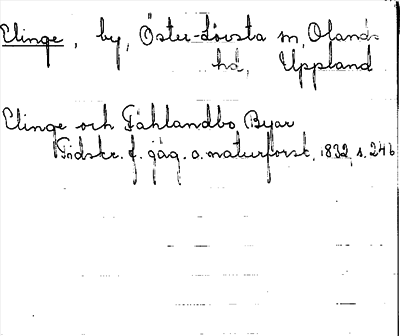 Elinge, by, Öster-Lövsta sn, Olands
hd, Uppland
Elinge och Fåhlandbo Byar
Tidskr. f. jäg. o. naturforsk. 1832, s. 246